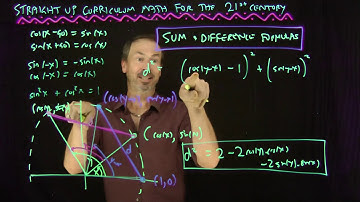 STRAIGHT UP CURRICULUM MATH FOR THE 21ST CENTURY
cos(x-90) = sin(x)
sin(x+90) = cos(x)
sin(-x) = -sin(x)
cos(-x) = cos(x)
sin²x + cos²x = 1
SUM + DIFFERENCE FORMULAS
d² (cos(y-x) - 1)² + (sin(y-x))²
(cos(x), sin(x))
d
(1,0)
d² = 2 - 2cos(y)·cos(x)
- 2 sin(y)·sin(x)